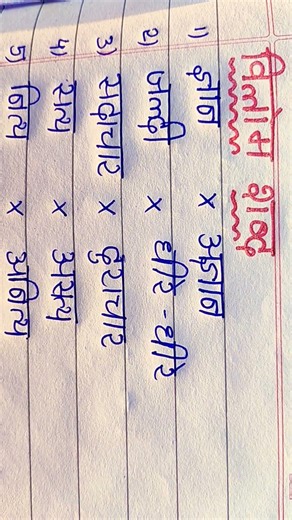 विलोम शब्द
1) ज्ञान × अज्ञान
2) जल्दी × धीरे - धीरे
3) सदाचार × दुराचार
4) सत्य × असत्य
5) नित्य × अनित्य